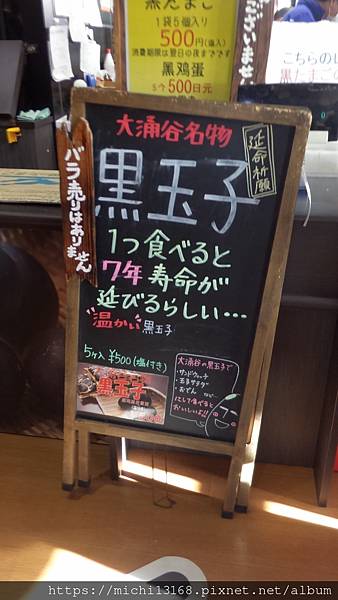 黒たまご
1袋5個入り
500円(塩入)
消費期限は翌日の夜までです
黑鸡蛋
5个500日元
ございません
こちらのレ
黒たまご
大涌谷名物
延命祈願
黒玉子
バラ売りはありません
1つ食べると
7年寿命が
延びるらしい…
温かい黒玉子
5ヶ入 ¥500(塩付き)
黒玉子
大涌谷の黒玉子で
・サンドウィッチ
・玉子サラダ
・おでん
にして食べると
おいしいよ!!
https://michi13168.pixnet.net/album